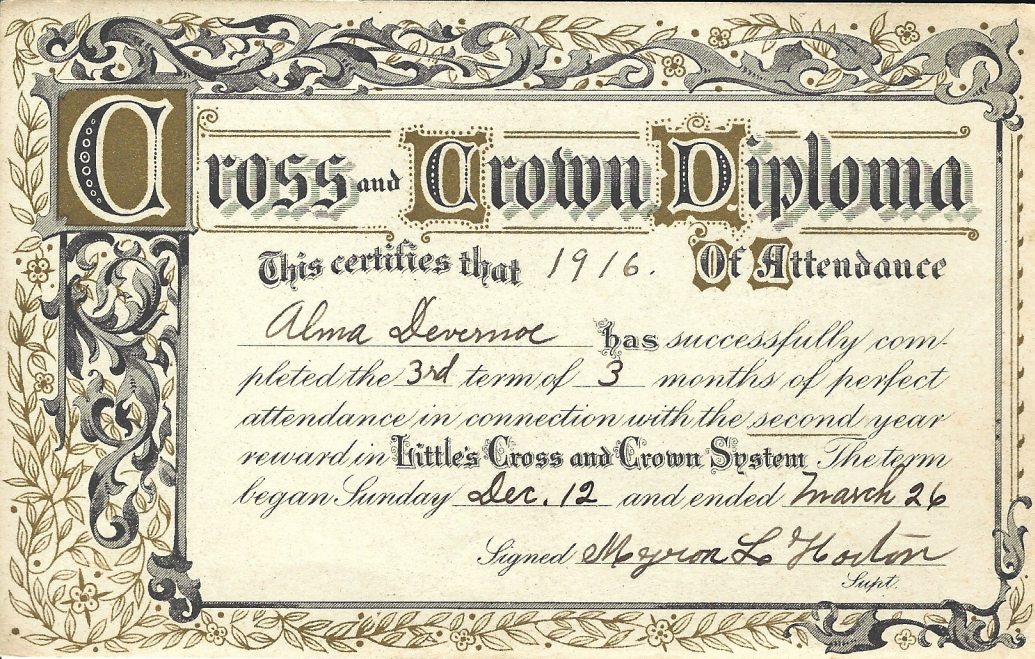 Cross and Crown Diploma
This certifies that 1916. Of Attendance
Alma Devernoe has successfully com-
pleted the 3rd term of 3 months of perfect
attendance in connection with the second year
reward in Little's Cross and Crown System The term
began Sunday Dec. 12 and ended March 26
Signed Myron L Horton
Supt.